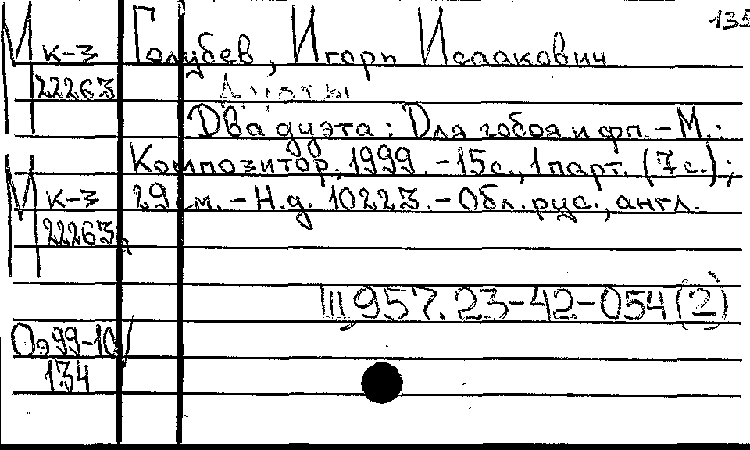 135
М к-3 Голубев, Игорь Исаакович
22263 Дуэты
Два дуэта: Для гобоя и фп. - М.:
Композитор, 1999. - 15с., 1 парт. (7 с.);
М к-3 29 см. - Н.д. 10223. - Обл. рус., англ.
22263
Ш957.23-42-054(2)
Оэ99-10/
134